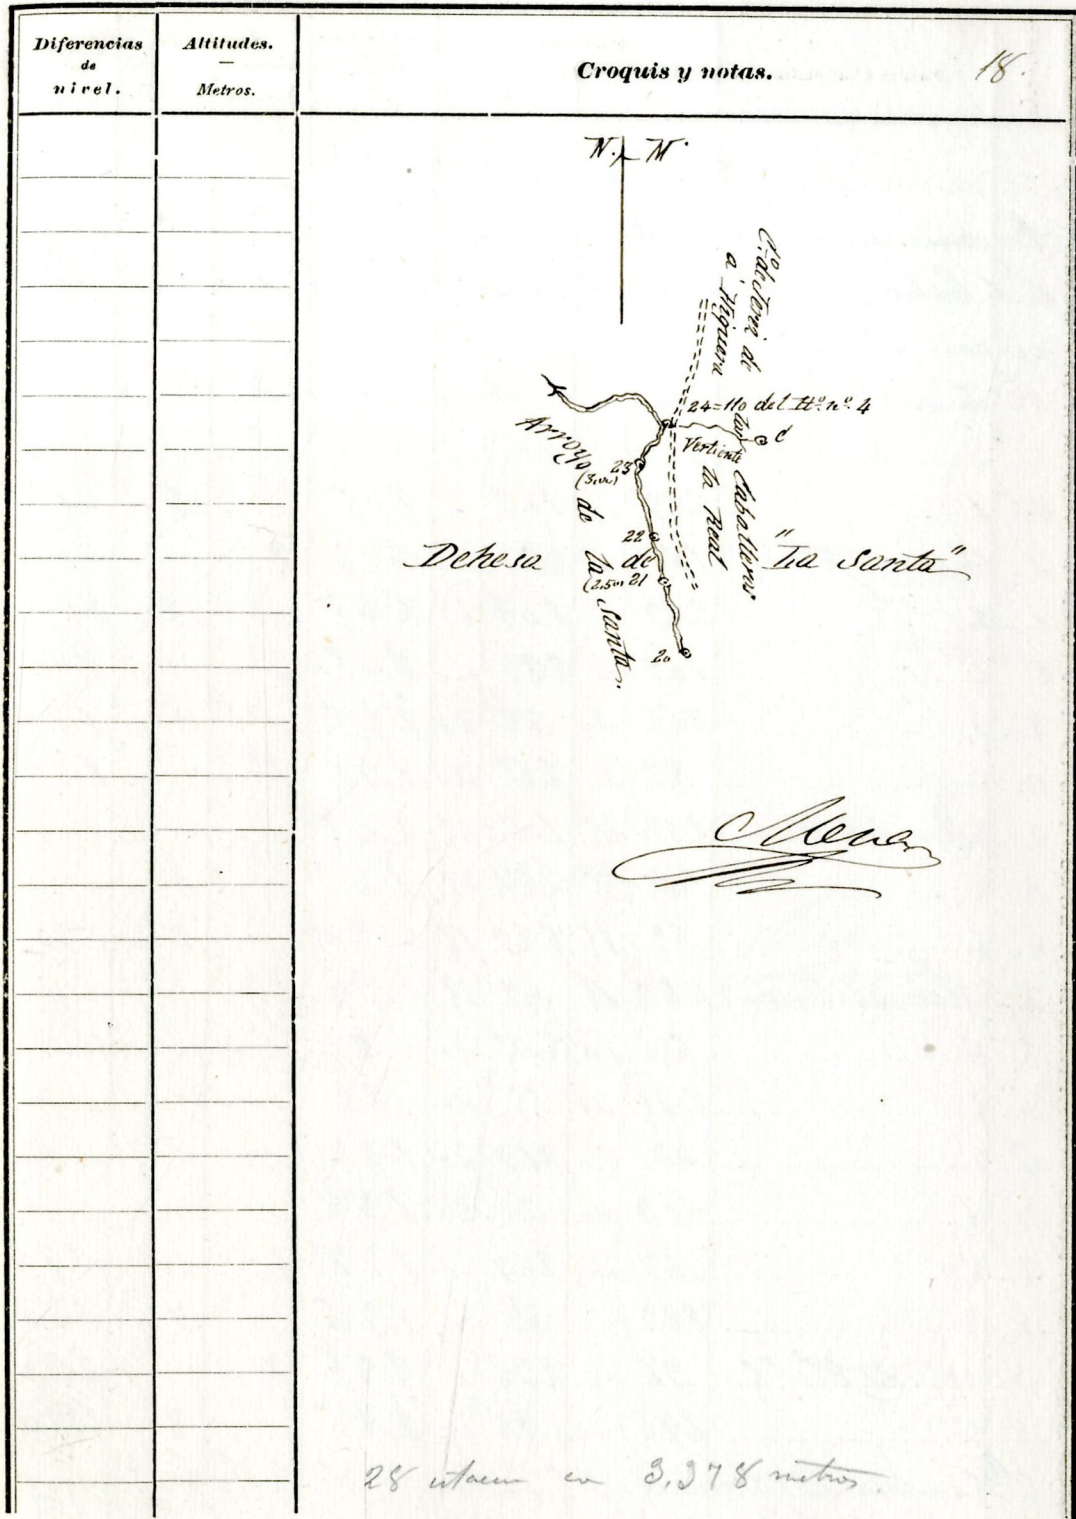 Diferencias
de
nivel.
Altitudes.
—
Metros.
Croquis y notas.
18.
N. M.
Cº. de Jerez de los Caballeros
a Higuera la Real
24=110 del Itº. nº. 4
C
Vertiente
23
(3,00)
Arroyo de la Santa.
22
Dehesa de "La Santa"
(2,5m) 21
20
28 en 3,378 metros